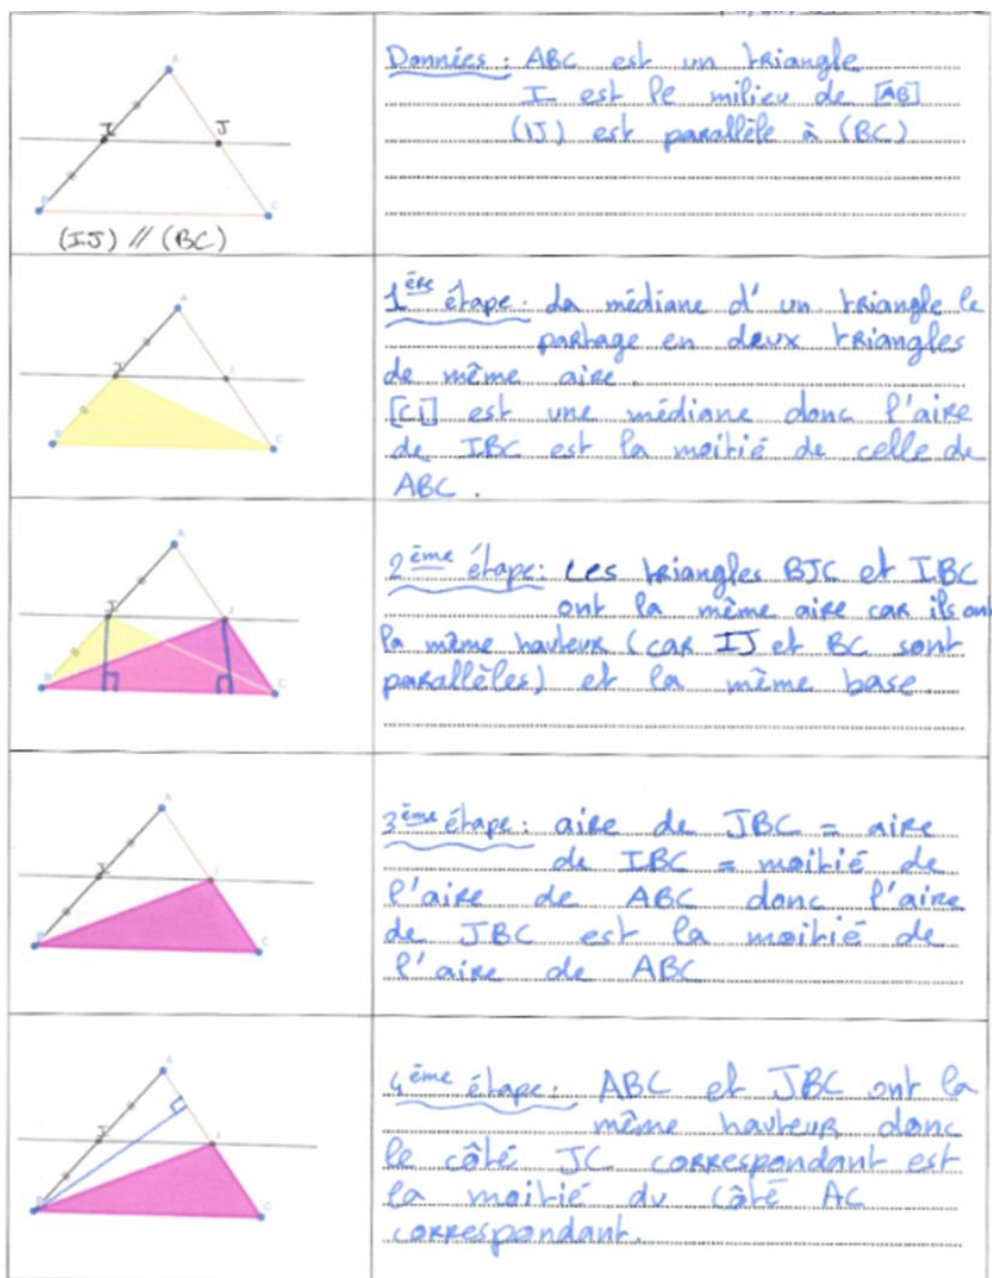 A
I
J
B
C
(IJ) // (BC)
Données : ABC est un triangle
I est le milieu de [AB]
(IJ) est parallèle à (BC)
A
I
J
B
C
1ère étape : La médiane d'un triangle le
partage en deux triangles
de même aire.
[CI] est une médiane donc l'aire
de IBC est la moitié de celle de
ABC.
A
I
J
B
C
2ème étape : Les triangles BJC et IBC
ont la même aire car ils ont
la même hauteur (car IJ et BC sont
parallèles) et la même base.
A
I
J
B
C
3ème étape : aire de JBC = aire
de IBC = moitié de
l'aire de ABC donc l'aire
de JBC est la moitié de
l'aire de ABC
A
I
J
B
C
4ème étape : ABC et JBC ont la
même hauteur donc
le côté JC correspondant est
la moitié du côté AC
correspondant.